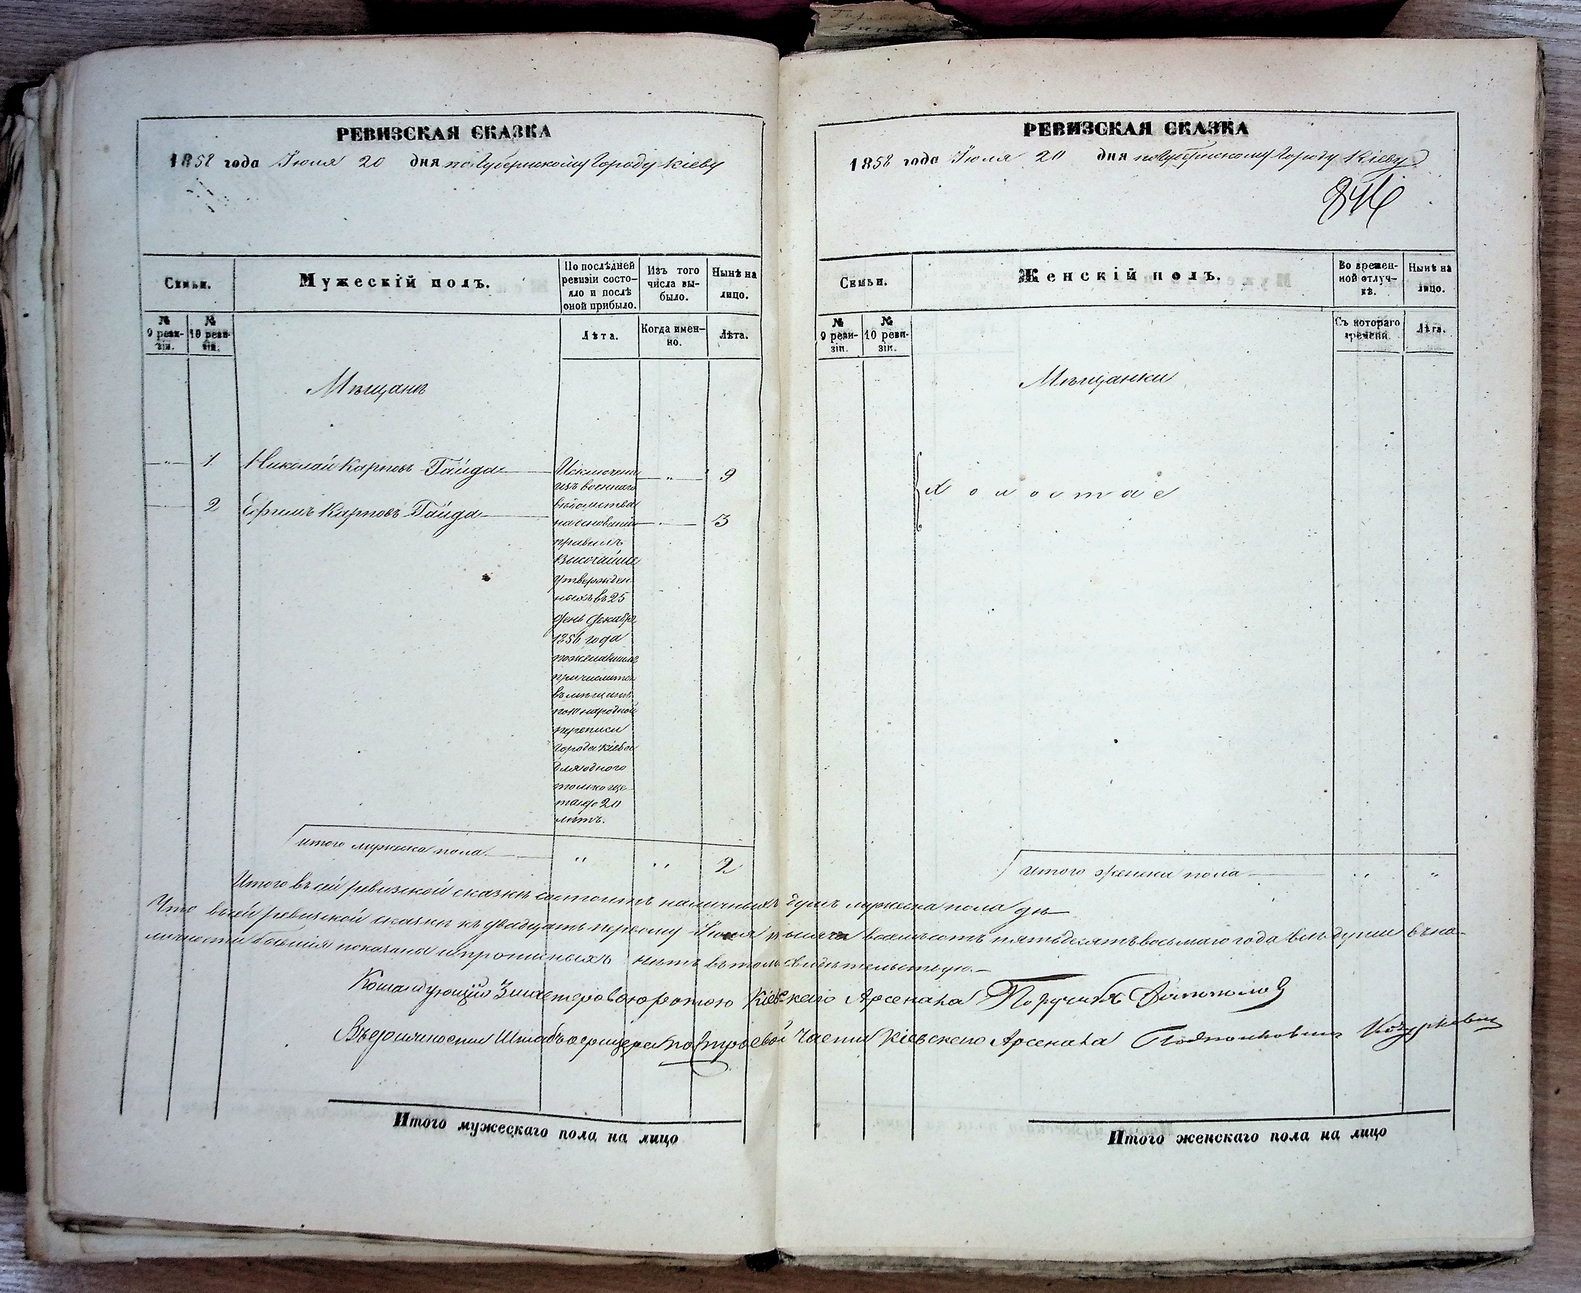 РЕВИЗСКАЯ СКАЗКА
1858 года Июля 20 дня по Губернскому Городу Кіеву
Семьи.
Мужескій полъ.
По послѣдней ревизіи состояло и послѣ оной прибыло.
Изъ того числа выбыло.
Нынѣ на лицо.
№ 9 ревизіи.
№ 10 ревизіи.
Лѣта.
Когда именно.
Лѣта.
Мѣщане
1 Николай Карповъ Гайда 9
2 Ефимъ Карповъ Гайда 3
Исключены
изъ военнаго
вѣдомства
на основаніи
правилъ
Высочайше
утвержден
ныхъ въ 25
день Декабря
1856 года
пожелавшіе
причислится
въ мѣщане
по народной
переписи
города Кіева
для одного
только щета
до 20
лѣтъ.
Итого мужеска пола " " 2
РЕВИЗСКАЯ СКАЗКА
1858 года Июля 20 дня по Губернскому Городу Кіеву
846
Семьи.
Женскій полъ.
Во временной отлучкѣ.
Нынѣ на лицо.
№ 9 ревизіи.
№ 10 ревизіи.
Съ котораго времени.
Лѣта.
Мѣщанки
Холостые
Итого женска пола " "
Итого въ сей ревизской сказкѣ состоитъ наличныхъ душъ мужеска пола двѣ
Что въ сей ревизской сказкѣ къ двадцать первому Июля тысяча восемьсотъ пятьдесятъ восьмаго года всѣ души в на-
личности бывшія показаны и прописныхъ нѣтъ въ томъ свидѣтельствую.
Командующій мастеровою ротою Кіевскаго Арсенала Поручикъ
Въ должности Штабъ офицера по строевой Части Кіевскаго Арсенала Подполковникъ
Итого мужескаго пола на лицо
Итого женскаго пола на лицо